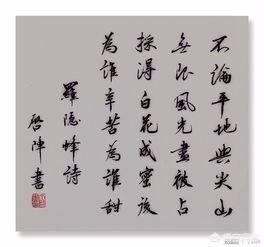 不論平地與尖山
無限風光盡被占
採得白花成蜜後
為誰辛苦為誰甜
羅隱蜂詩
啓陣書